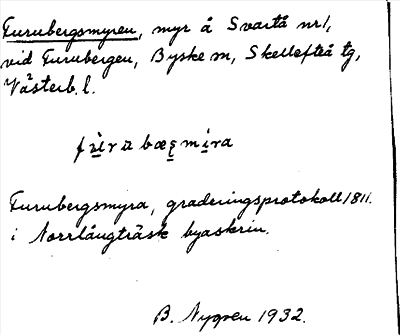 Furubergsmyren, myr å Svartå nr1,
vid Furubergen, Byske m, Skellefteå tg,
Västerb. l.
Furubergsmyra, graderingsprotokoll 1811.
i Norrlångträsk byaskrin.
B. Nygren 1932.